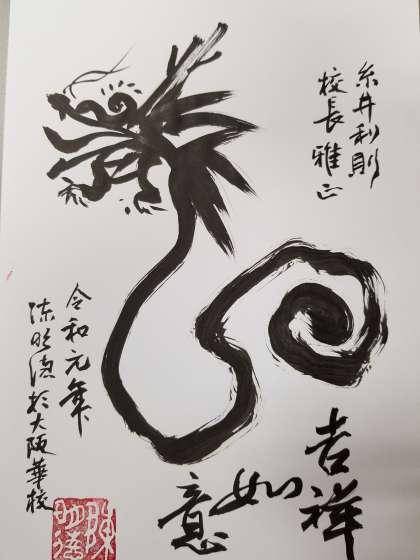 糸井利則
校長雅正
吉祥
如
意
令和元年
陈明德於大阪華校
陳
明德